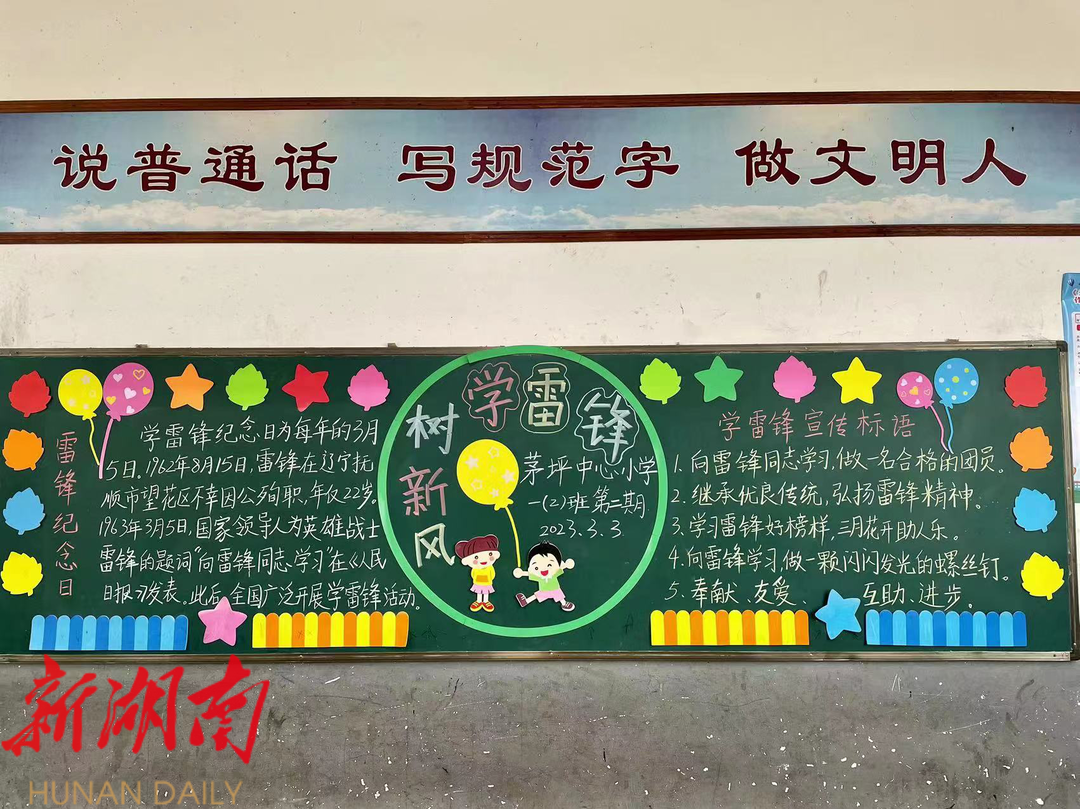 说普通话 写规范字 做文明人
雷锋纪念日
学雷锋纪念日为每年的3月
5日。1962年8月15日,雷锋在辽宁抚
顺市望花区不幸因公殉职,年仅22岁。
1963年3月5日,国家领导人为英雄战士
雷锋的题词“向雷锋同志学习”在《人民
日报》发表。此后,全国广泛开展学雷锋活动。
学雷锋
树新风
茅坪中心小学
一(2)班 第二期
2023.3.3
学雷锋宣传标语
1.向雷锋同志学习,做一名合格的团员。
2.继承优良传统,弘扬雷锋精神...
3.学习雷锋好榜样,三月花开助人乐。
4.向雷锋学习,做一颗闪闪发光的螺丝钉。
5.奉献、友爱、互助、进步。
新湖南
HUNAN DAILY